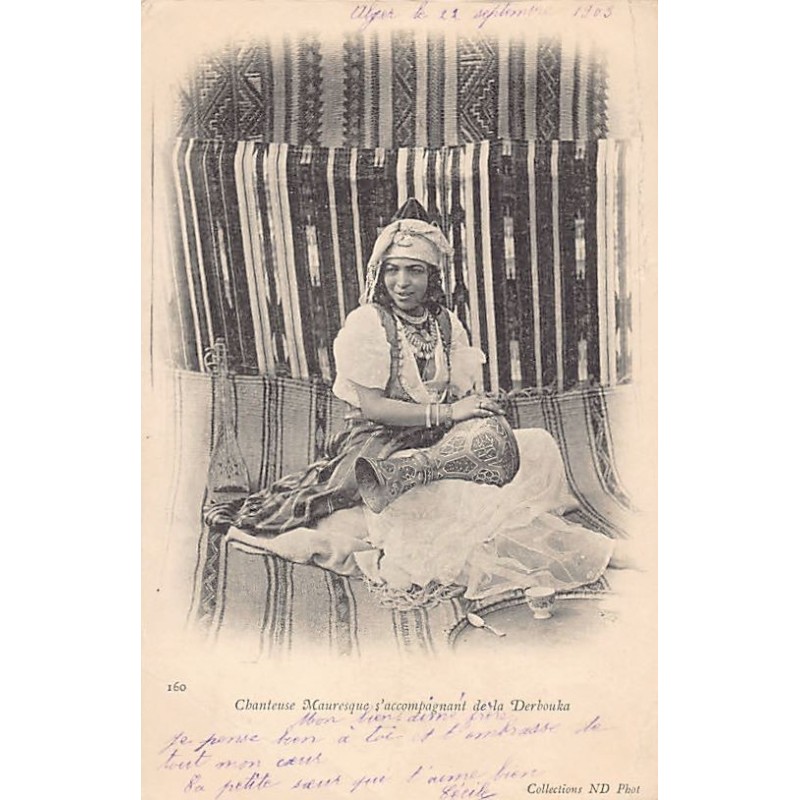 Alger le 22 septembre 1903
160
Chanteuse Mauresque s'accompagnant de la Derbouka
Mon bien frère
Je pense bien à toi et t'embrasse de
tout mon cœur
Ta petite sœur qui t'aime bien
Cécile
Collections ND Phot